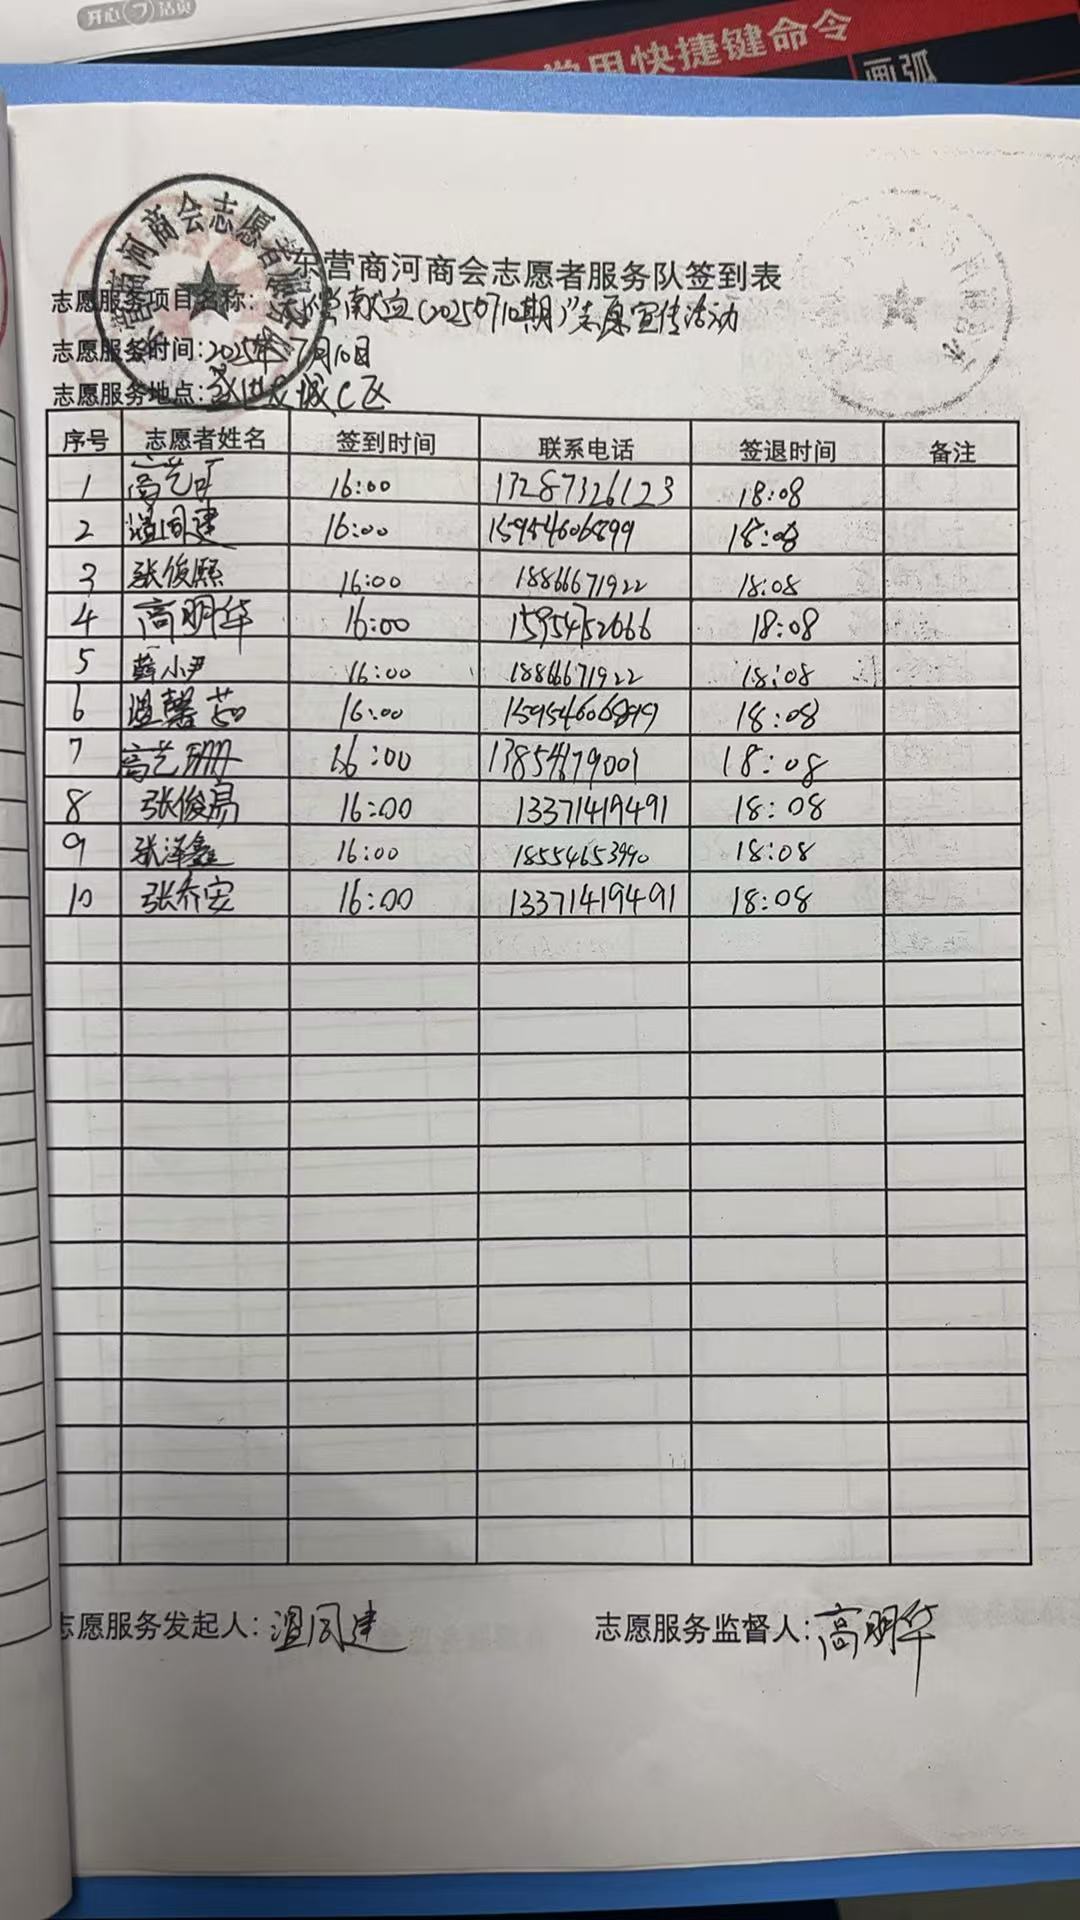 开心 活页
常用快捷键命令
画弧
东营商河商会志愿者服务队签到表
志愿服务项目名称: 献血(20250710期)"志愿宣传活动
志愿服务时间:2025年7月10日
志愿服务地点: 城C区
序号 志愿者姓名 签到时间 联系电话 签退时间 备注
1 高艺可 16:00 17287326123 18:08
2 温同建 16:00 15954606899 18:08
3 张俊熙 16:00 18866671922 18:08
4 高明华 16:00 15954752666 18:08
5 薛小尹 16:00 18866671922 18:08
6 温馨茹 16:00 15954606899 18:08
7 高艺珊 16:00 13854679001 18:08
8 张俊易 16:00 13371419491 18:08
9 张泽鑫 16:00 18554653990 18:08
10 张乔安 16:00 13371419491 18:08
志愿服务发起人:温同建 志愿服务监督人:高明华